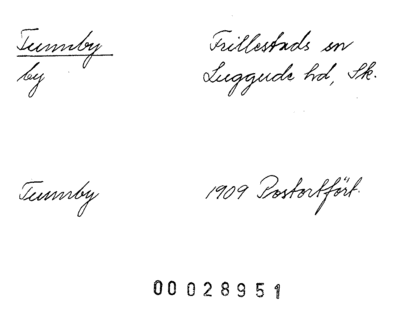 Tunnby Frillestads sn
by Luggude hd, Sk.
Tunnby 1909 Postortfört.
00028951